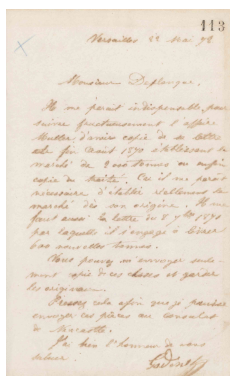 113
Versailles 22 Mai 72
Monsieur Deplanque,
Il me parait indispensable, pour
suivre fructueusement l'affaire
Muller, d'avoir copie de sa lettre
de fin Août 1870 établissant le
marché de 2000 tonnes ou enfin
copie du traité. Car il me parait
nécessaire d'établir réellement le
marché dès son origine. Il me
faut aussi la lettre du 8 7bre 1870
par laquelle il s'engage à livrer
600 nouvelles tonnes.
Vous pouvez m'envoyer seule-
ment copie de ces choses et garder
les originaux.
Pressez cela afin que je puisse
envoyer ces pièces au consulat
de
J'ai bien l'honneur de vous
saluer.